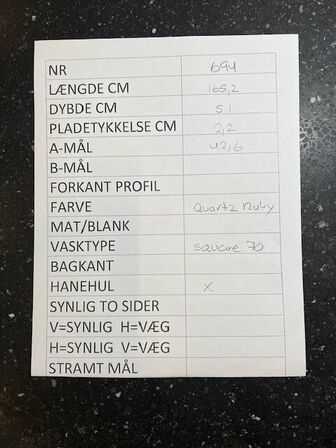 NR 694
LÆNGDE CM 165,2
DYBDE CM 51
PLADETYKKELSE CM 2,2
A-MÅL 42,6
B-MÅL
FORKANT PROFIL
FARVE Quartz Ruby
MAT/BLANK
VASKTYPE square 70
BAGKANT
HANEHUL X
SYNLIG TO SIDER
V=SYNLIG H=VÆG
H=SYNLIG V=VÆG
STRAMT MÅL